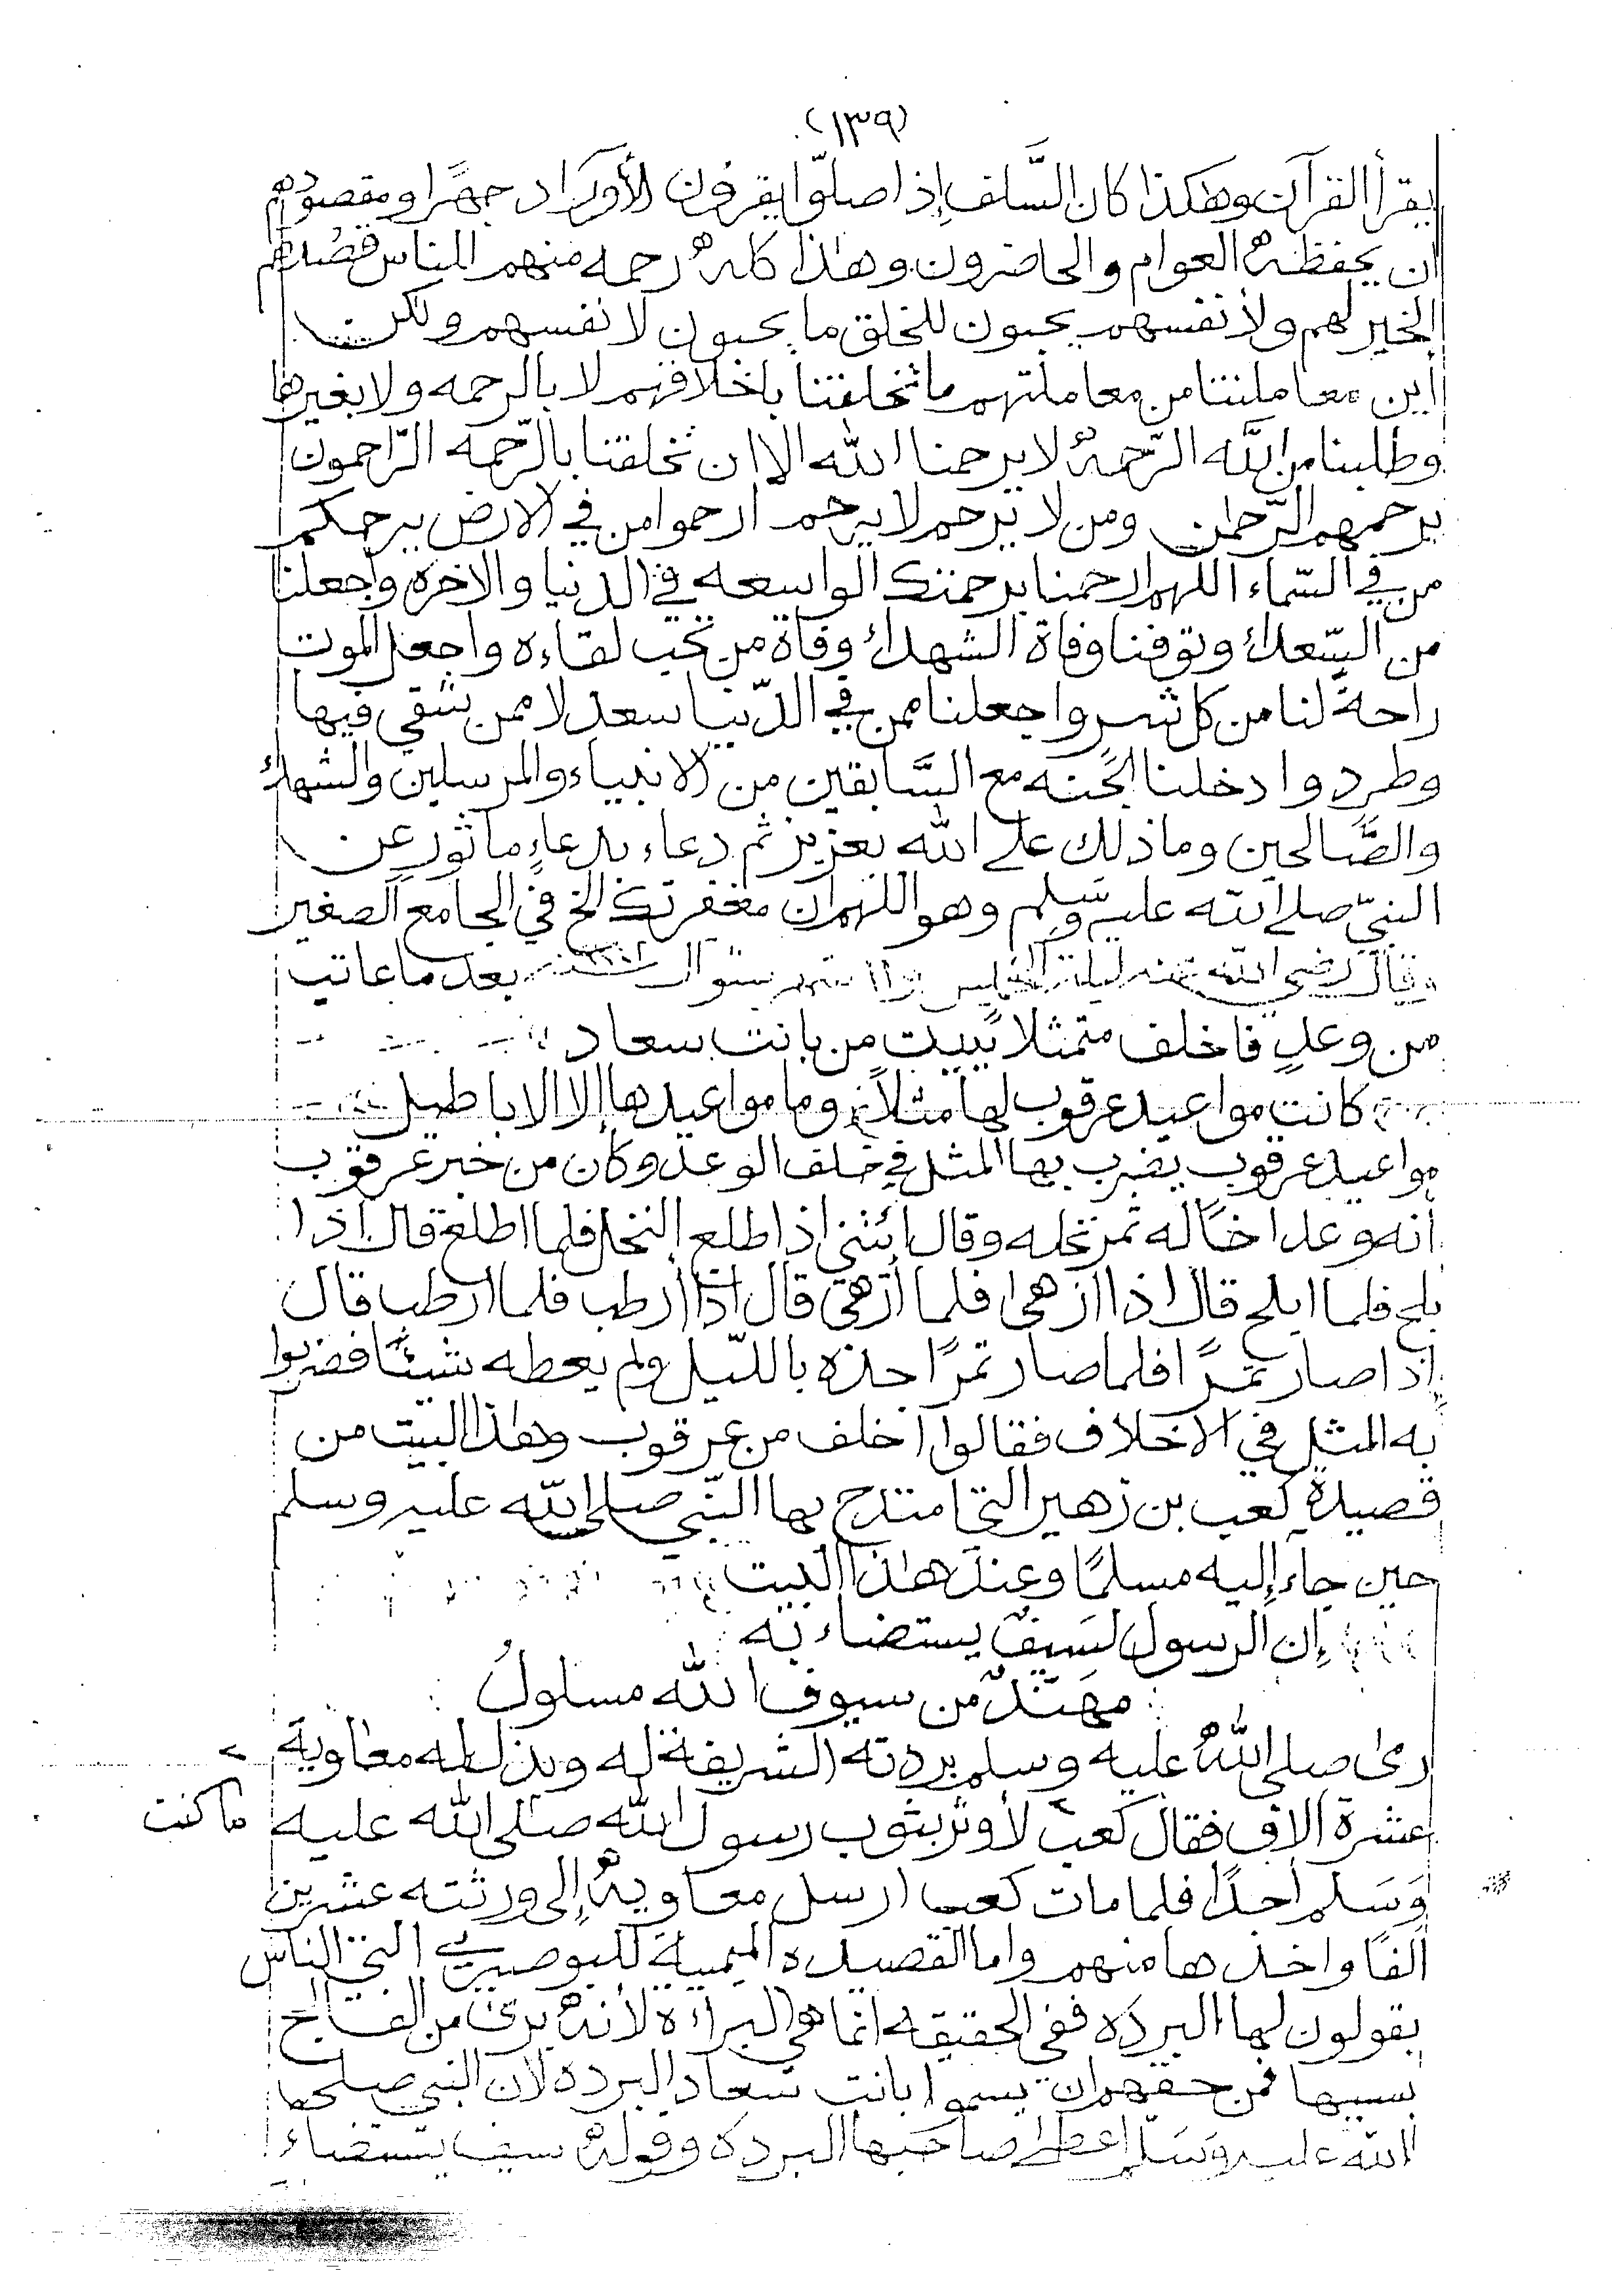 (١٣٩)
يقرأ القرآن وهكذا كان السَّلف إذا صلّوا يقرؤن الأوراد جهرًا ومقصودهم
ان يحفظهُ العوام والحاضرون وهٰذا كلهُ رحمه منهم للناس قصدهم
الخير لهم ولأنفسهم يحبون للخلق ما يحبون لانفسهم ولكن
أين معاملتنا من معاملتهم ما تخلقنا باخلاقهم لا بالرحمه ولا بغيرها
وطلبنا من اللَّه الرّحمةُ لا يرحمنا الله الا ان تخلقنا بالرّحمه الرّاحمون
يرحمهم الرّحمان ومن لا يرحم لا يرحم ارحموا من في الارض يرحمكم
من في السّماء اللهم ارحمنا برحمتك الواسعه في الدنيا والاخره واجعلنا
من السّعداء وتوفنا وفاة الشهداء وفاة من تحب لقاءه واجعل الموت
راحةً لنا من كل شر واجعلنا ممن في الدّنيا سعد لا ممن شقي فيها
وطرد وادخلنا الجَنه مع السَّابقين من الانبياء والمرسلين والشهداء
والصَّالحين وما ذلك على الله بعزيز ثم دعاء بدعاءٍ مأثور عن
النبيّ صلى الله عليه وسلم وهو اللهم ان مغفرتك الخ في الجامع الصغير
وقال رضي الله عنه ليلة الخميس شهر شوال بعد ما عاتب
من وعدٍ فاخلف متمثلا ببيت من بانت سعاد
كانت مواعيد عرقوب لها مثلاً وما مواعيدها إلا الاباطيل
مواعيد عرقوب يضرب بها المثل في خلف الوعد وكان من خبر عرقوب
أنه وعد اخًا له ثمر نخله وقال ائتني اذا طلع النخل فلما اطلع قال اذا
بلح فلما ابلح قال اذا ازهى فلما أزهى قال اذا أرطب فلما ارطب قال
إذا صار تمرًا فلما صار تمرًا جذه بالليل ولم يعطه شيئًا فضربوا
به المثل في الاخلاف فقالوا أخلف من عرقوب وهٰذا البيت من
قصيدة كعب بن زهير التي امتدح بها النّبي صلى الله عليه وسلم
حين جاء إليه مسلمًا وعند هٰذا البيت
إن الرسول لسَيفٌ يستضاء به
مهَندٌ من سيوف الله مسلولُ
رمى صلى اللهُ عليه وسلم بردته الشريفة له وبذل له معاوية
عشرة الاف فقال كعب لأوثر بثوب رسول الله صلى الله عليه
ما كنت
وَسَلم أحدًا فلما مات كعب ارسل معاويةُ إلى ورثته عشرين
الفًا واخذها منهم واما القصيده الميمية للبوصيري التي الناس
يقولون لها البرده ففي الحقيقه انما هي البراءة لأنهُ برئ من الفالج
بسببها فمن حقهم ان يسموا بانت سعاد البرده لان النبي صلى
الله عليه وسَلم اعطى صاحبها البرده وقولهُ سيف يستضاء